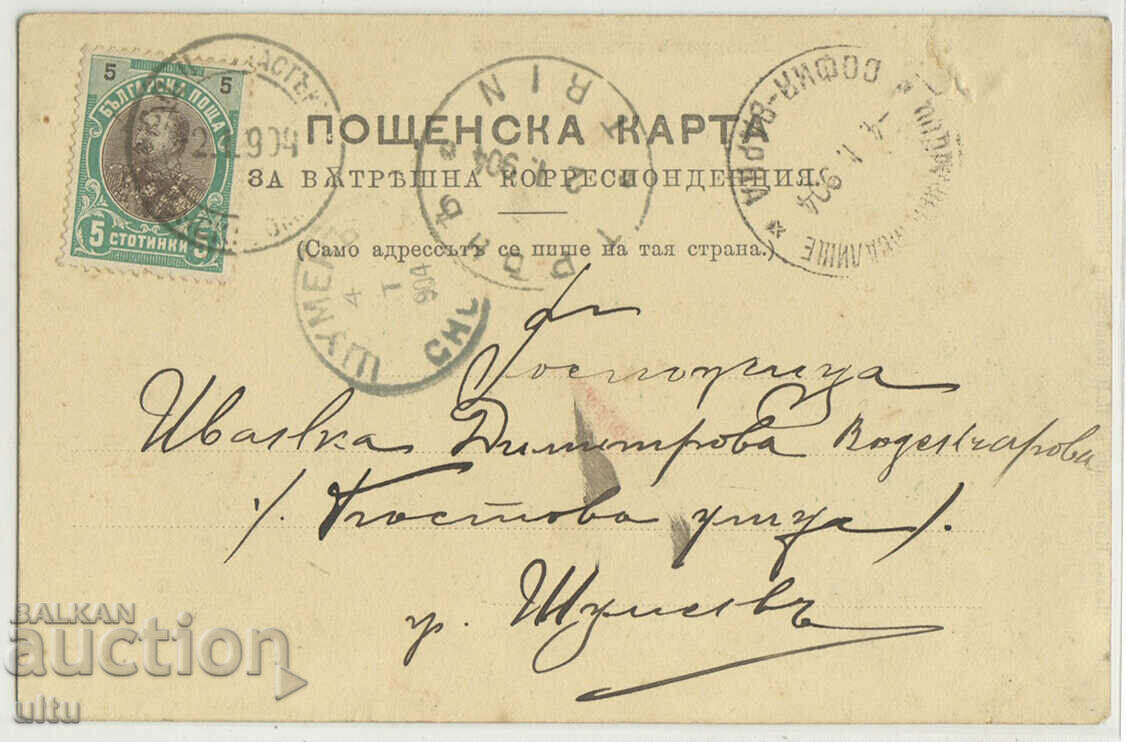 5 5
БЪЛГАРСКА ПОЩА
5 СТОТИНКИ 5
2. 904
ПОЩЕНСКА КАРТА
ЗА ВѪТРѢШНА КОРРЕСПОНДЕНЦИЯ.
(Само адрессътъ се пише на тая страна.)
RIN
904
СОФИЯ-ВАРНА
904
ШУМЕНЪ
4 I 904
Госпожица
Иванка Димитрова Воденичарова
/. Костова улица /.
гр. Шуменъ
BALKAN
auction
ultu